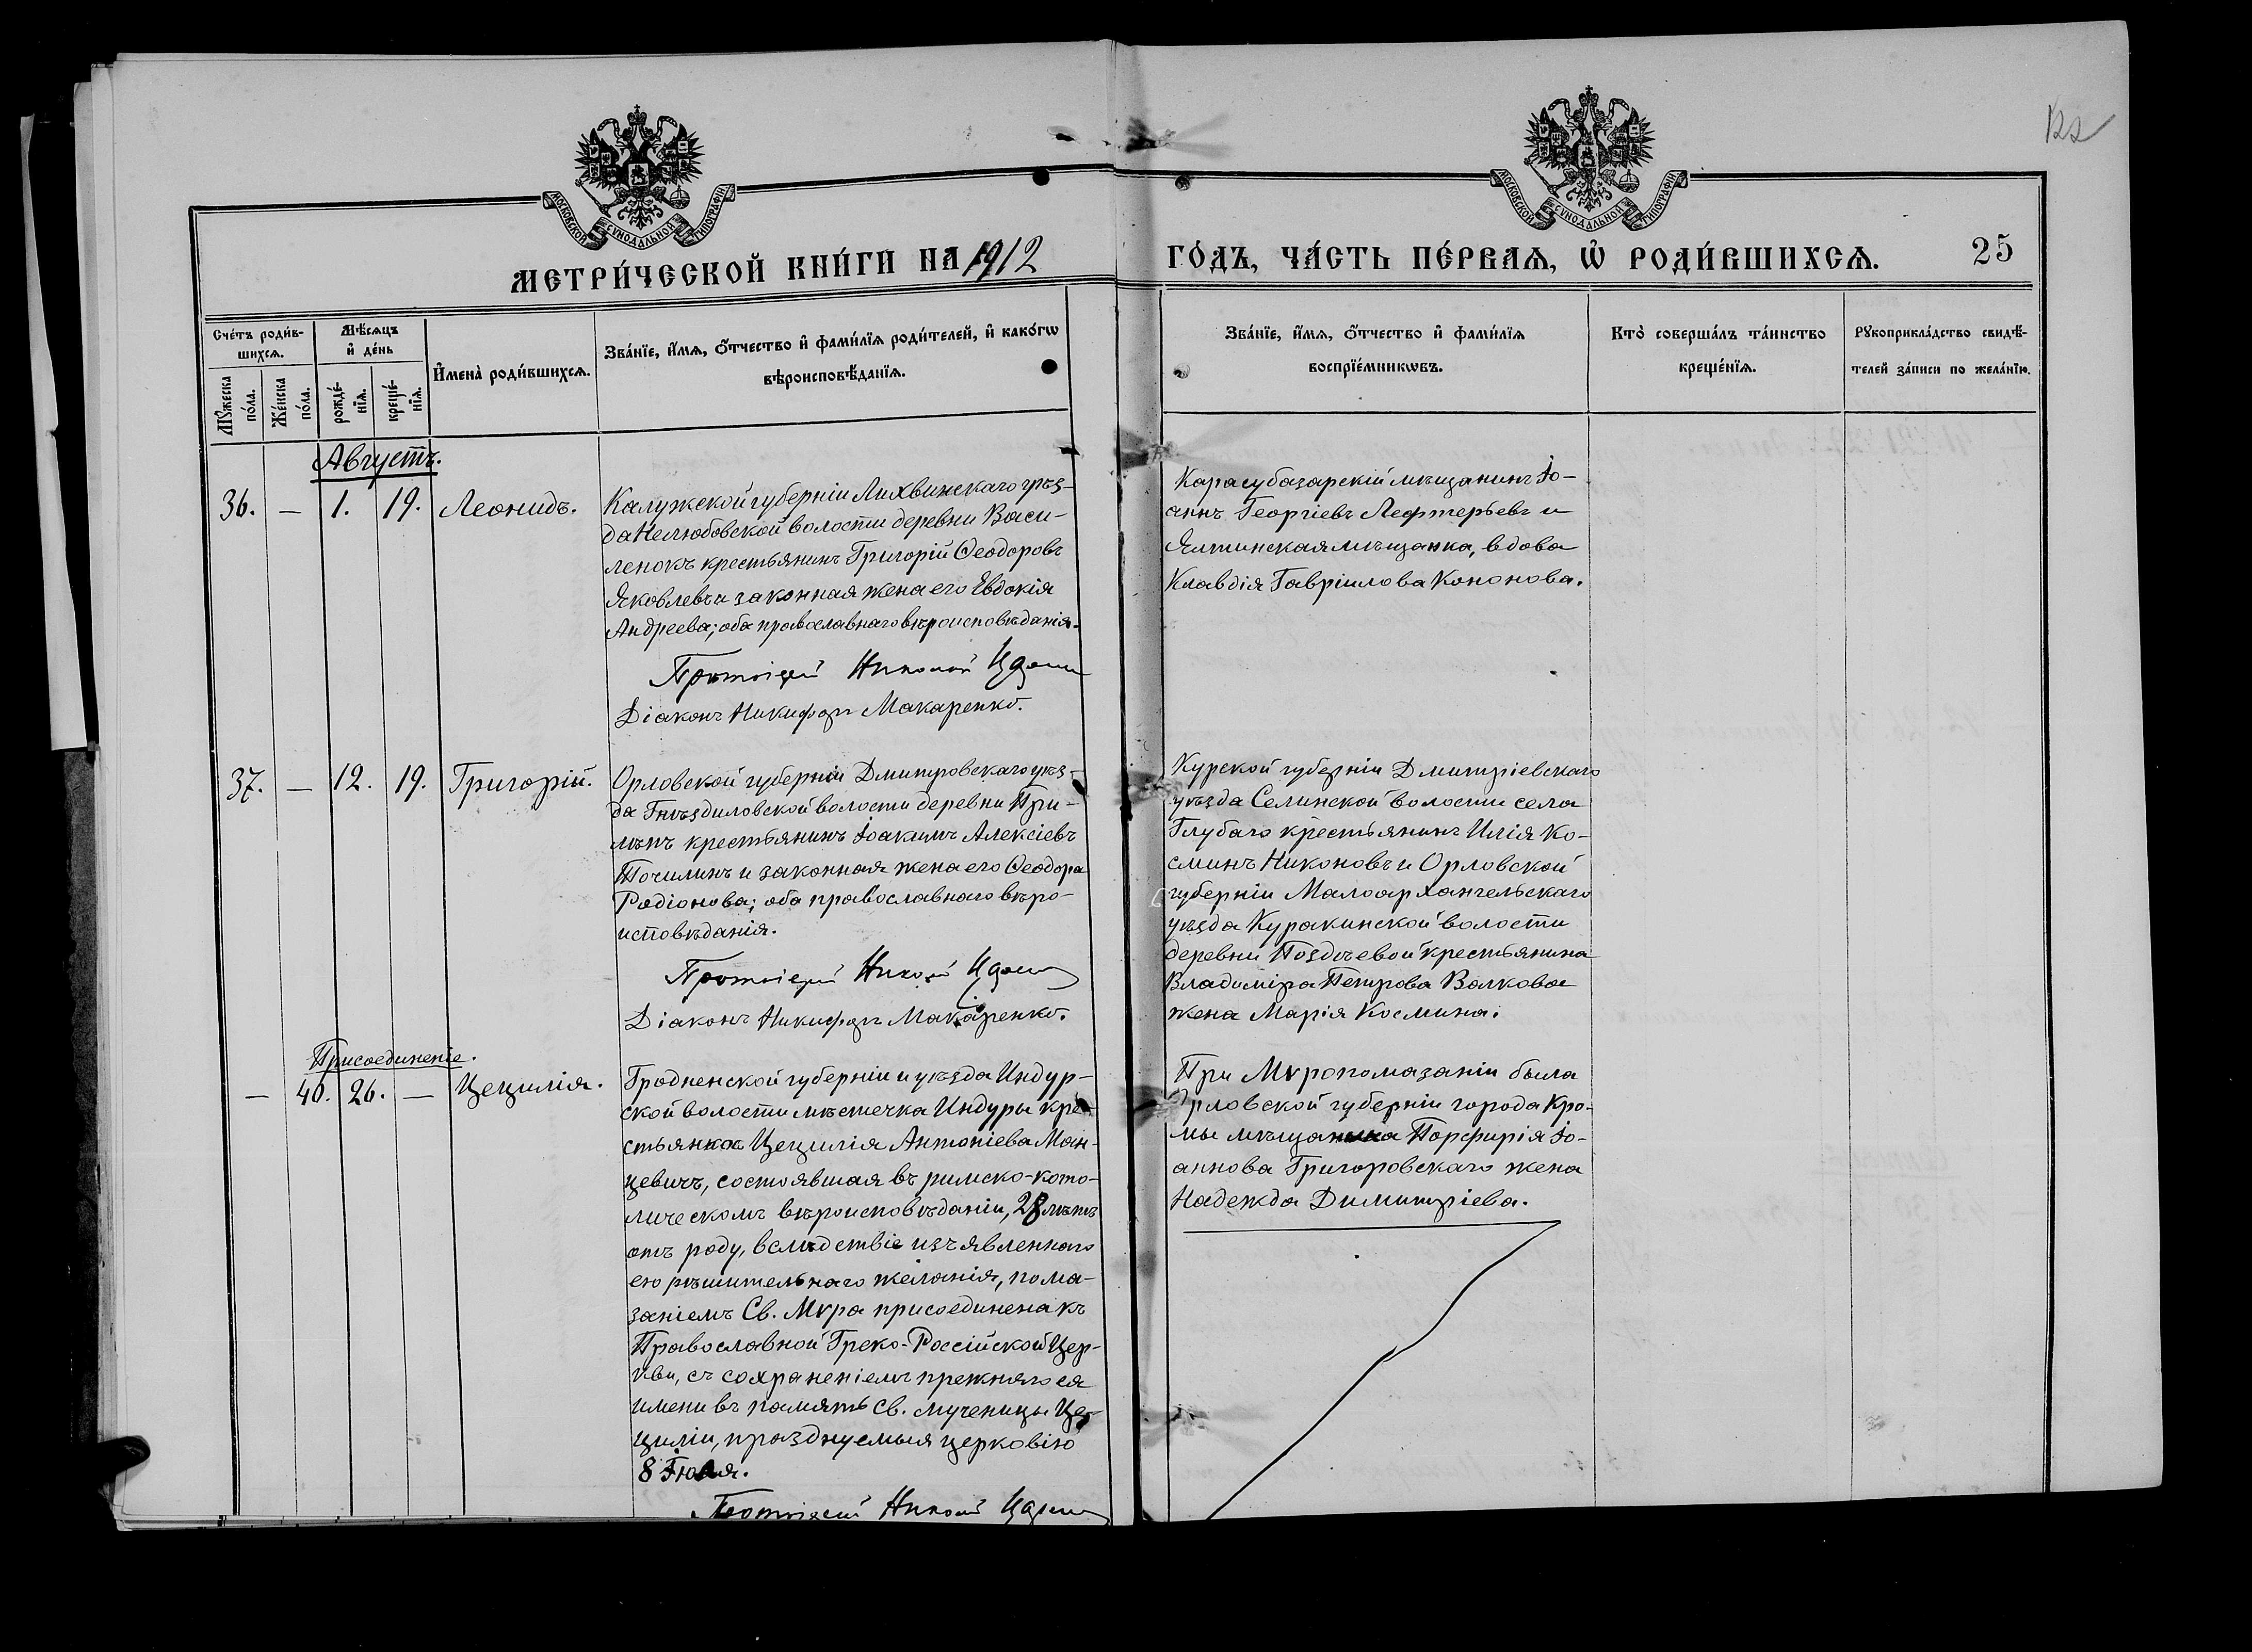 МОСКОВСКОЙ СУНОДАЛЬНОЙ ТИПОГРАФІИ
МОСКОВСКОЙ СУНОДАЛЬНОЙ ТИПОГРАФІИ
МЕТРИ́ЧЕСКОЙ КНИ́ГИ НА 1912
ГО́ДЪ, ЧА́СТЬ ПЕ́РВАѦ, Ѡ҆ РОДИ́ВШИХСѦ.
25
Сче́тъ роди́в-
шихсѧ.
Мꙋ́жеска
по́ла.
Же́нска
по́ла.
Мѣ́сѧцъ
и҆ де́нь
рожде́-
нїѧ.
креще́-
нїѧ.
И҆мена̀ роди́вшихсѧ.
Зва́нїе, и҆́мѧ, ѻ҆́тчество и҆ фами́лїѧ роди́телей, и҆ како́гѡ
вѣроисповѣ́данїѧ.
Зва́нїе, и҆́мѧ, ѻ҆́тчество и҆ фами́лїѧ
воспрїе́мникѡвъ.
Кто̀ соверша́лъ та́инство
креще́нїѧ.
Рꙋкоприкла́дство свидѣ́-
телей за́писи по жела́нїю.
Августъ.
36. — 1. 19. Леонидъ.
Калужской губерніи Лихвинскаго уѣз-
да Нелюбовской волости деревни Васи-
ленокъ крестьянинъ Григорій Ѳеодоровъ
Яковлевъ и законная жена его Евдокія
Андреева; оба православнаго вѣроисповѣданія.
Протоіерей Николай
Діаконъ Никифоръ Макаренко.
Карасубазарскій мѣщанинъ Іо-
аннъ Георгіевъ Лефтерьевъ и
Ялтинская мѣщанка, вдова
Клавдія Гавріилова Кононова.
37. — 12. 19. Григорій.
Орловской губерніи Дмитровскаго уѣз-
да Гнѣздиловской волости деревни При-
лѣпъ крестьянинъ Іоакимъ Алексіевъ
Почилинъ и законная жена его Ѳеодора
Родіонова; оба православнаго вѣро-
исповѣданія.
Протоіерей Николай
Діаконъ Никифоръ Макаренко.
Курской губерніи Дмитріевскаго
уѣзда Селинской волости села
Глубаго крестьянинъ Илія Ко-
сминъ Никоновъ и Орловской
губерніи Малоархангельскаго
уѣзда Куракинской волости
деревни Поздѣевой крестьянина
Владиміра Петрова Волкова
жена Марія Космина.
Присоединеніе.
— 40. 26. — Цецилія.
Гродненской губерніи и уѣзда Индур-
ской волости мѣстечка Индуры кре-
стьянка Цецилія Антоніева Ман-
цевичъ, состоявшая въ римско-като-
лическомъ вѣроисповѣданіи, 28 лѣтъ
отъ роду, вслѣдствіе изъявленнаго
ею рѣшительнаго желанія, пома-
заніемъ Св. Мѵра присоединена къ
Православной Греко-Россійской Цер-
кви, съ сохраненіемъ прежняго ея
имени въ память св. мученицы Це-
циліи, празднуемыя церковію
8 Іюля.
Протоіерей Николай
При Мѵропомазаніи была
Орловской губерніи города Кро-
мы мѣщанина Порфирія Іо-
аннова Григоровскаго жена
Надежда Димитріева.